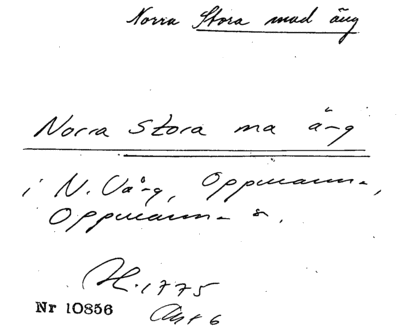 Norra Stora mad äng
Norra Stora ma äng
i N. Vång, Oppmanna,
Oppmanna s.
H. 1775
Akt 6
Nr 10856